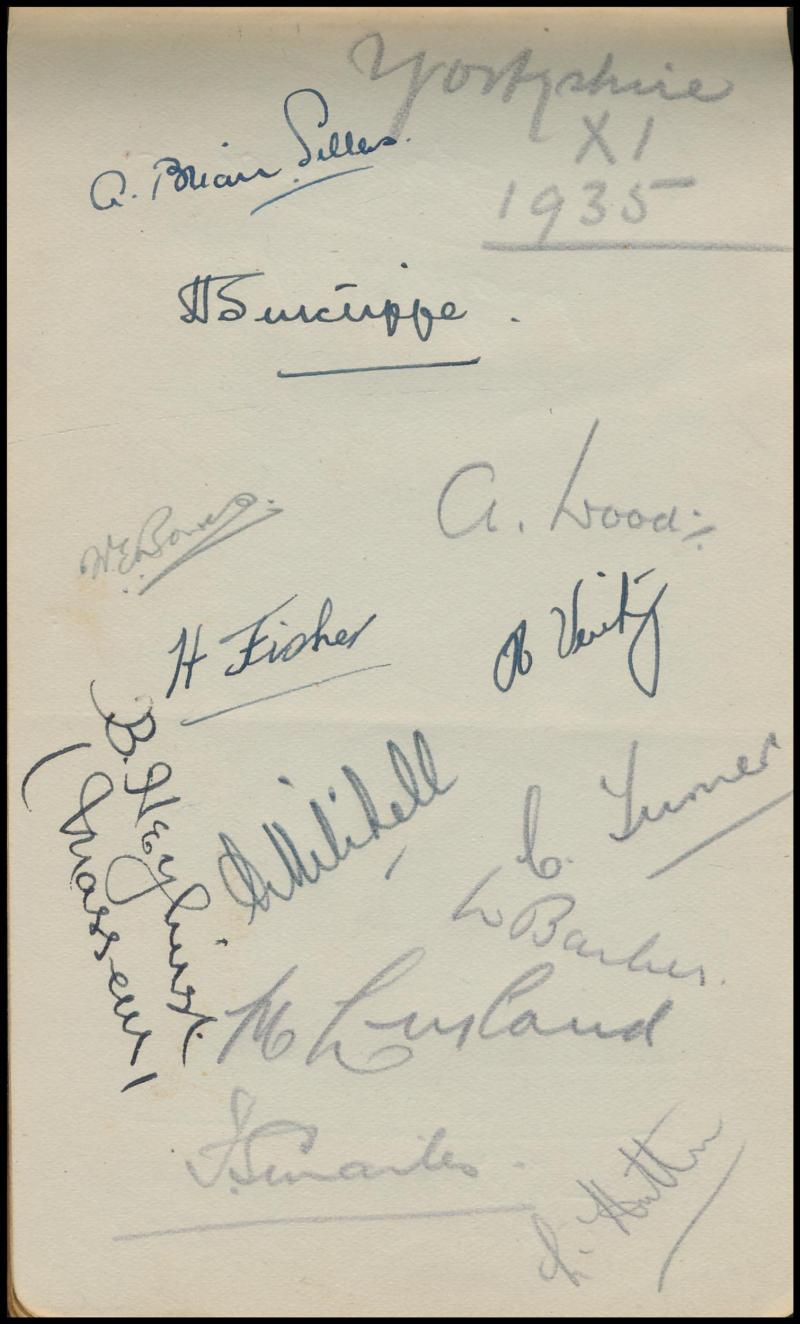 Yorkshire
XI
1935
A. Brian Sellers.
H Sutcliffe.
A. Wood.
W E Bowes.
H Fisher
H Verity
B. Heyhirst.
(Masseur)
A Mitchell
C. Turner
W Barber.
M Leyland
T. Smailes.
L. Hutton